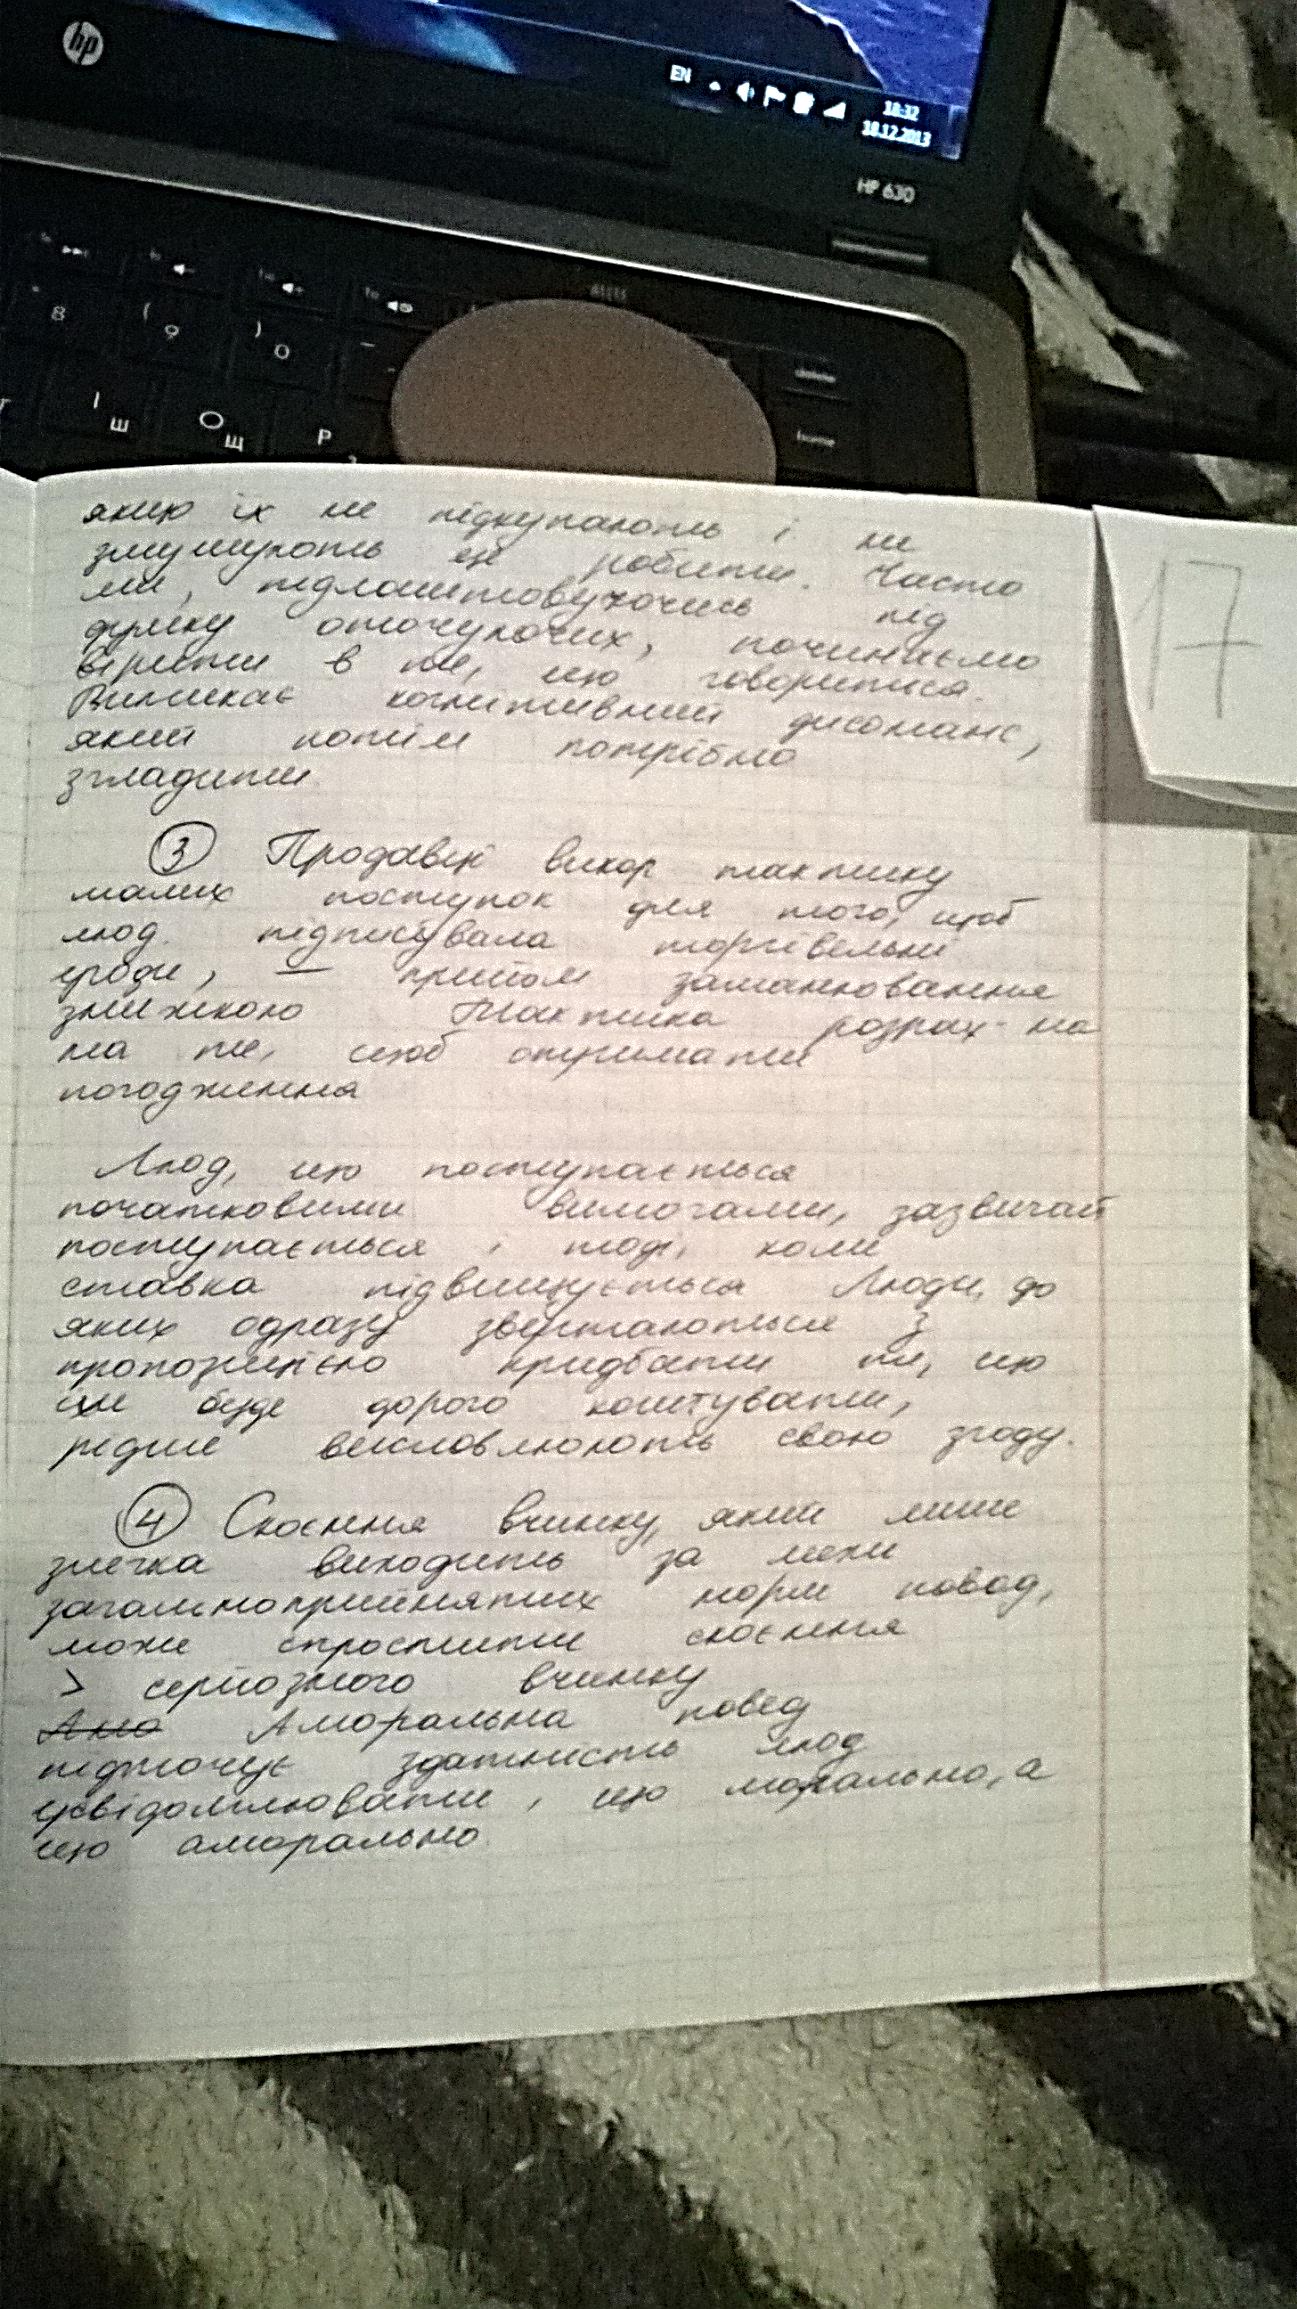 hp
EN
18:32
18.12.2013
HP 630
8
( 9
) 0
І Ш
О Щ
Р
delete
home
якщо їх не підкупають і не
змушують це робити. Часто
ми, підлаштовуючись під
думку оточуючих, починаємо
вірити в те, що говоритися.
Виникає когнітивний дисонанс,
який потім потрібно
згладити
17
③ Продавці викор тактику
малих поступок для того, щоб
люд. підписувала торгівельні
угоди, — прийом заманювання
знижкою Тактика розрах-на
на те, щоб отримати
погодження
Люд, що поступається
початковими вимогами, зазвичай
поступається і тоді, коли
ставка підвищується Люди, до
яких одразу звертаються з
пропозицією придбати те, що
їм буде дорого коштувати,
рідше висловлюють свою згоду.
④ Скоєння вчинку, який лише
злегка виходить за межі
загальноприйнятих норм повед,
може спростити скоєння
> серйозного вчинку
Амо Аморальна повед
підточує здатність люд
усвідомлювати, що морально, а
що аморально.